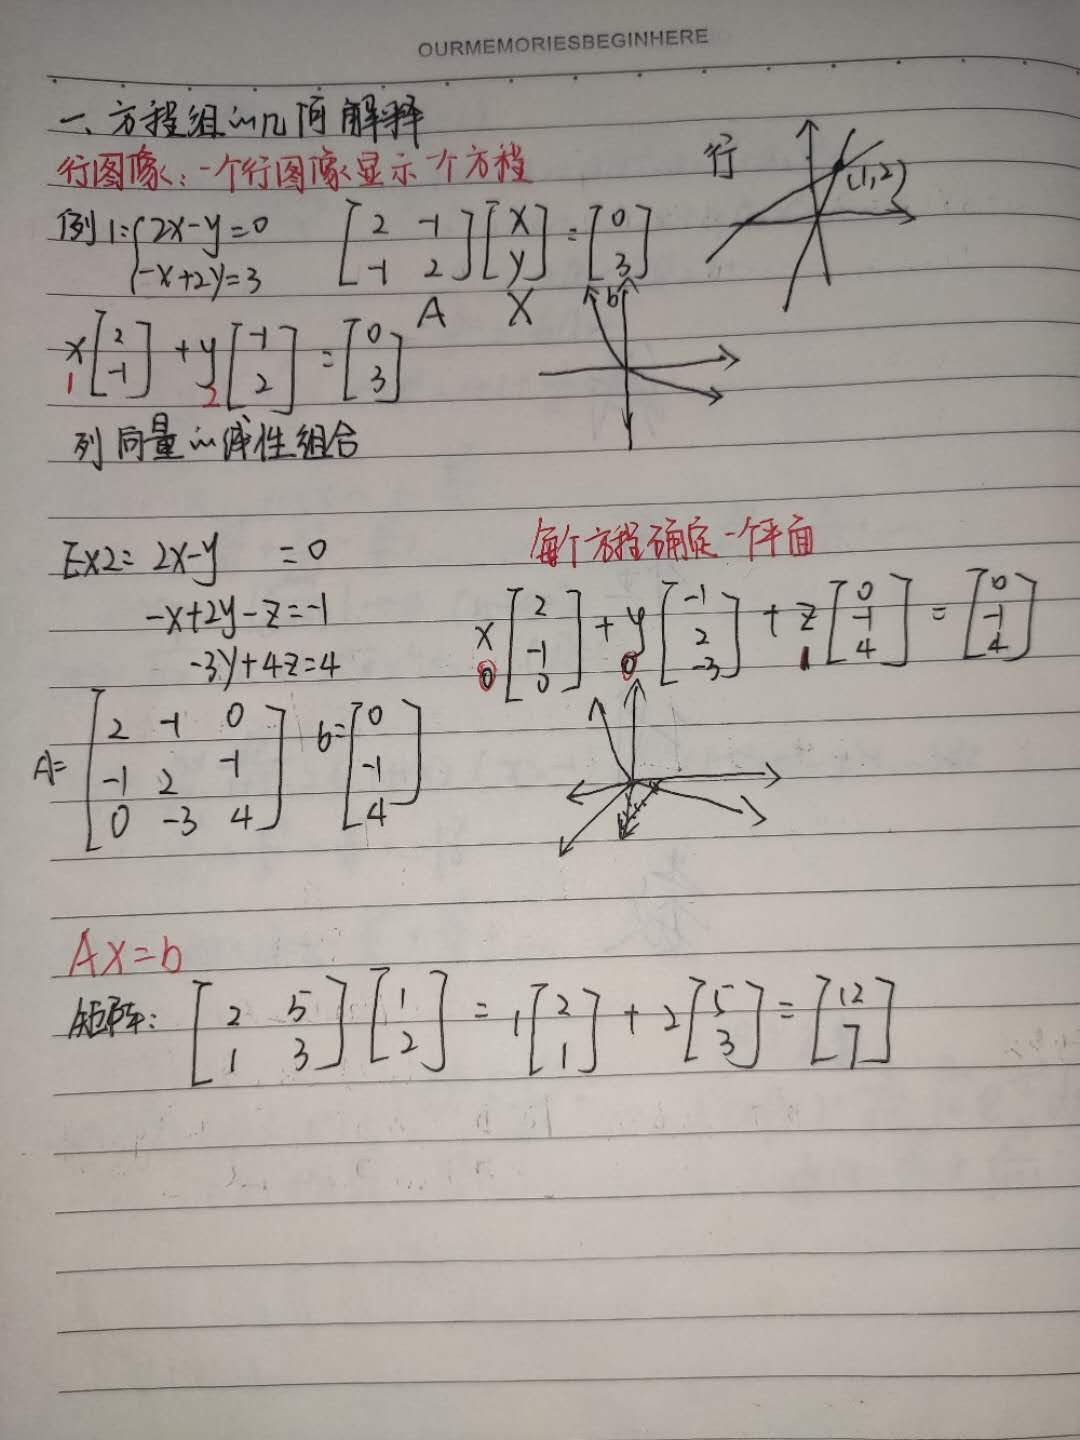 OURMEMORIESBEGINHERE
一、方程组的几何解释
行图像：一个行图像显示一个方程
行
(1,2)
例1: { 2x-y=0
-x+2y=3
[2 -1; -1 2] [x; y] = [0; 3]
A X b
x[2; -1] + y[-1; 2] = [0; 3]
1 2
列向量的线性组合
Ex2: 2x-y =0
-x+2y-z=-1
-3y+4z=4
每个方程确定一个平面
x[2; -1; 0] + y[-1; 2; -3] + z[0; -1; 4] = [0; -1; 4]
0 0 1
A= [2 -1 0; -1 2 -1; 0 -3 4] b= [0; -1; 4]
Ax=b
矩阵: [2 5; 1 3] [1; 2] = 1[2; 1] + 2[5; 3] = [12; 7]